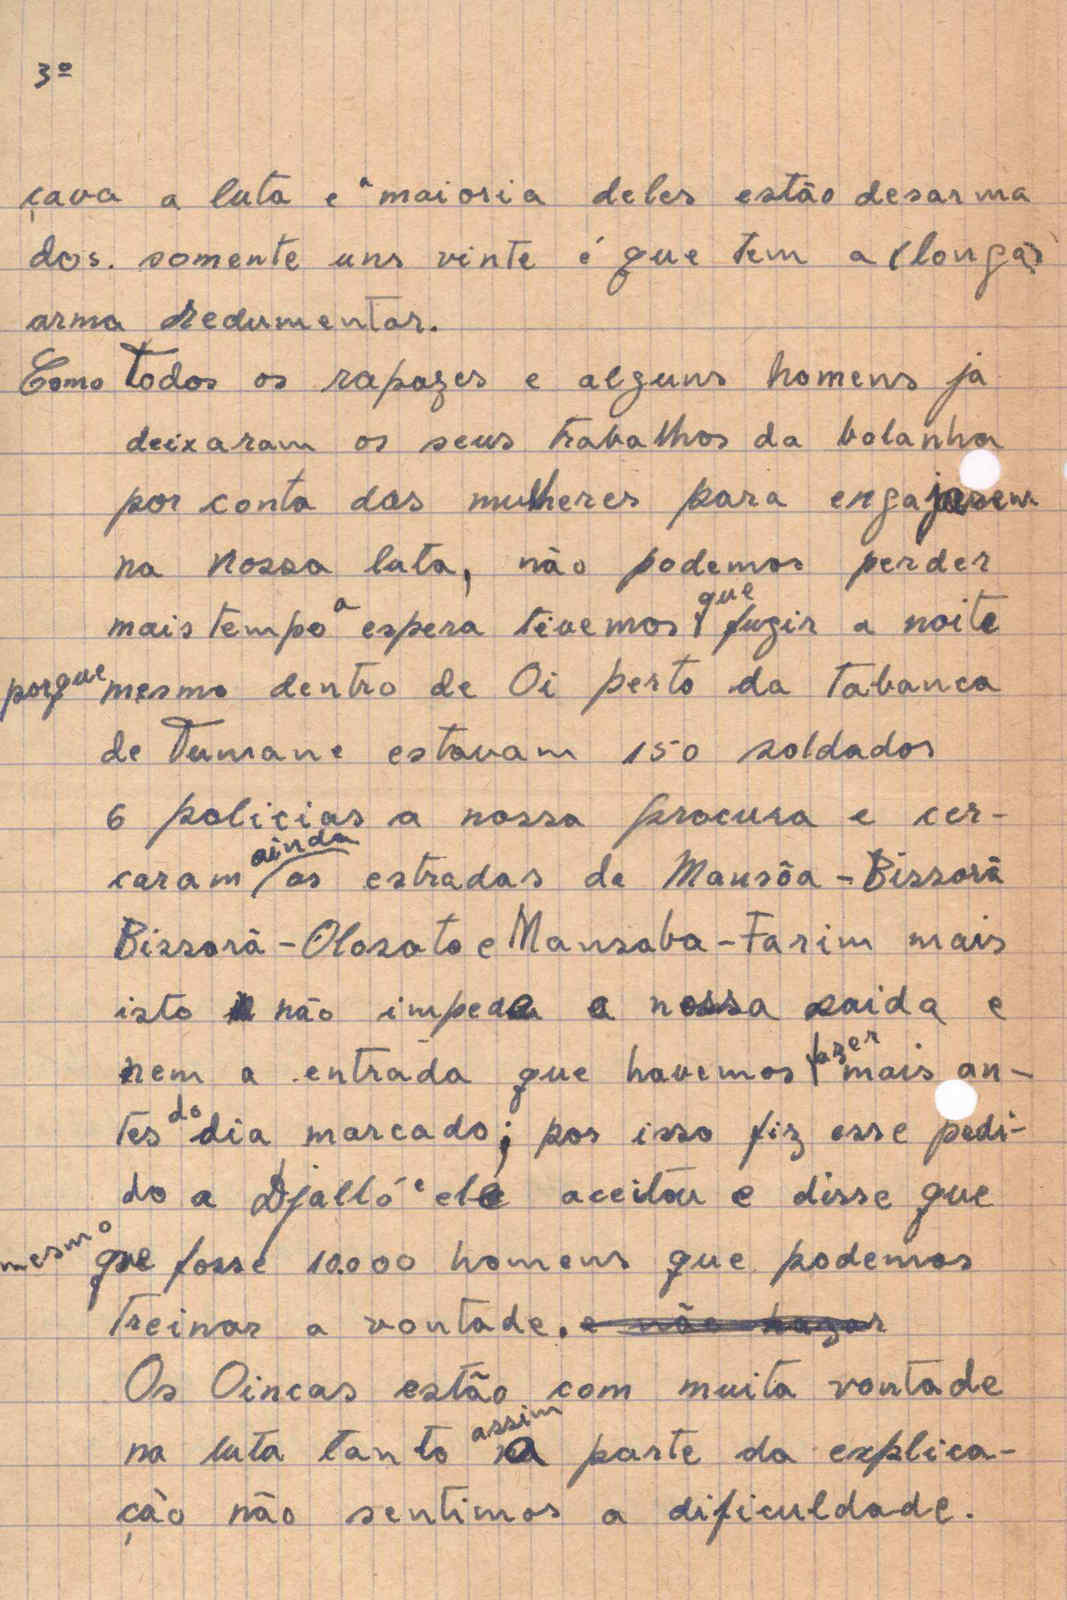 3º
çava a luta e a maioria deles estão desarma
dos. somente uns vinte é que tem a (longa)
arma redumentar.
Como Todos os rapazes e alguns homens ja
deixaram os seus trabalhos da bolanha
por conta das mulheres para engajarem
na nossa luta, não podemos perder
mais tempo a espera tivemos que fugir a noite
porque mesmo dentro de Oi perto da tabanca
de Tumane estavam 150 soldados
6 policias a nossa procura e cer-
caram ainda as estradas de Mansôa - Bissorã
Bissorã - Olosato e Mansaba - Farim mais
isto não impede a nossa saida e
nem a entrada que havemos fazer mais an-
tes do dia marcado; por isso fiz esse pedi-
do a Djalló e ele aceitou e disse que
mesmo que fosse 10.000 homens que podemos
Treinar a vontade. e não
Os Oincas estão com muita vontade
na luta tanto assim a parte da explica-
ção não sentimos a dificuldade.